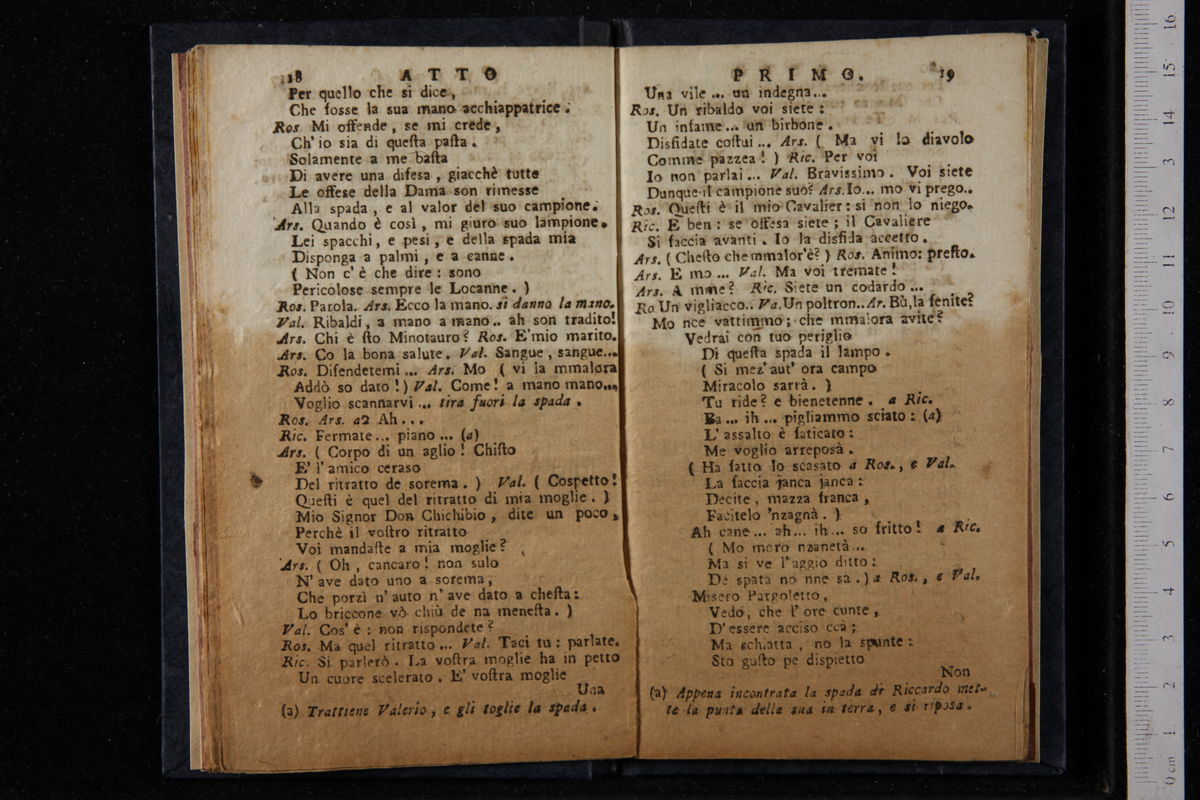 18 ATTO
Per quello che si dice,
Che fosse la sua mano acchiappatrice.
Ros Mi offende, se mi crede,
Ch' io sia di queſta paſta.
Solamente a me baſta
Di avere una difesa, giacchè tutte
Le offese della Dama son rimesse
Alla spada, e al valor del suo campione.
Ars. Quando è così, mi giuro suo lampione.
Lei spacchi, e pesi, e della spada mia
Disponga a palmi, e a canne.
( Non c' è che dire : sono
Pericolose sempre le Locanne. )
Ros. Parola. Ars. Ecco la mano. si danno la mano.
Val. Ribaldi, a mano a mano.. ah son tradito!
Ars. Chi è ſto Minotauro? Ros. E' mio marito.
Ars. Co la bona salute. Val. Sangue, sangue...
Ros. Difendetemi... Ars. Mo ( vi la mmalora
Addò so dato!) Val. Come! a mano mano...
Voglio scannarvi... tira fuori la spada.
Ros. Ars. a2 Ah...
Ric. Fermate... piano... (a)
Ars. ( Corpo di un aglio! Chiſto
E' l' amico ceraso
Del ritratto de sorema. ) Val. ( Cospetto!
Queſti è quel del ritratto di mia moglie. )
Mio Signor Don Chichibio, dite un poco,
Perchè il voſtro ritratto
Voi mandaſte a mia moglie?
Ars. ( Oh, cancaro! non sulo
N' ave dato uno a sorema,
Che porzì n' auto n' ave dato a cheſta:
Lo briccone vò chiù de na meneſta. )
Val. Cos' è : non rispondete?
Ros. Ma quel ritratto... Val. Taci tu : parlate.
Ric. Si parlerò. La voſtra moglie ha in petto
Un cuore scelerato. E' voſtra moglie
Una
(a) Trattiene Valerio, e gli toglie la spada.
PRIMO. 19
Una vile... un indegna...
Ros. Un ribaldo voi siete :
Un infame... un birbone.
Disfidate coſtui... Ars. ( Ma vi lo diavolo
Comme pazzea! ) Ric. Per voi
Io non parlai... Val. Bravissimo. Voi siete
Dunque il campione suo? Ars. Io... mo vi prego..
Ros. Queſti è il mio Cavalier : si non lo niego.
Ric. E ben : se offesa siete ; il Cavaliere
Si faccia avanti. Io la disfida accetto.
Ars. ( Cheſto che mmalor' è? ) Ros. Animo: preſto.
Ars. E mo... Val. Ma voi tremate!
Ars. A mme? Ric. Siete un codardo...
Ro Un vigliacco.. Va. Un poltron.. Ar. Bù, la fenite?
Mo nce vattimmo ; che mmalora avite?
Vedrai con tuo periglio
Di queſta spada il lampo.
( Si mez' aut' ora campo
Miracolo sarrà. )
Tu ride? e bienetenne. a Ric.
Ba... ih... pigliammo sciato : (a)
L' assalto è faticato :
Me voglio arreposà.
( Ha fatto lo scasato a Ros., e Val.
La faccia janca janca :
Decite, mazza franca,
Facitelo 'nzagnà. )
Ah cane... ah... ih... so fritto! a Ric.
( Mo moro nzanetà...
Ma si ve l' aggio ditto :
De spata no nne sa. ) a Ros., e Val.
Misero Pargoletto,
Vedo, che l' ore cunte,
D' essere acciso ccà ;
Ma schiatta, no la spunte :
Sto guſto pe dispietto
Non
(a) Appena incontrata la spada di Riccardo met-
te la punta della sua in terra, e si riposa.
0 cm 1 2 3 4 5 6 7 8 9 10 11 12 13 14 15 16